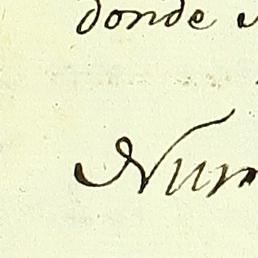 donde
Num